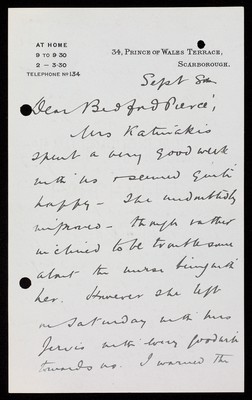 AT HOME
9 TO 9·30
2 – 3·30
TELEPHONE Nº 134
34, PRINCE OF WALES TERRACE,
SCARBOROUGH.
Sept 8th
Dear Bedford Pierce,
Mrs Katinakis
spent a very good week
with us & seemed quite
happy – She undoubtedly
improved – though rather
inclined to be troublesome
about the nurse being with
her. However she left
on Saturday with Mrs
Jervis with every goodwill
towards us. I warned the